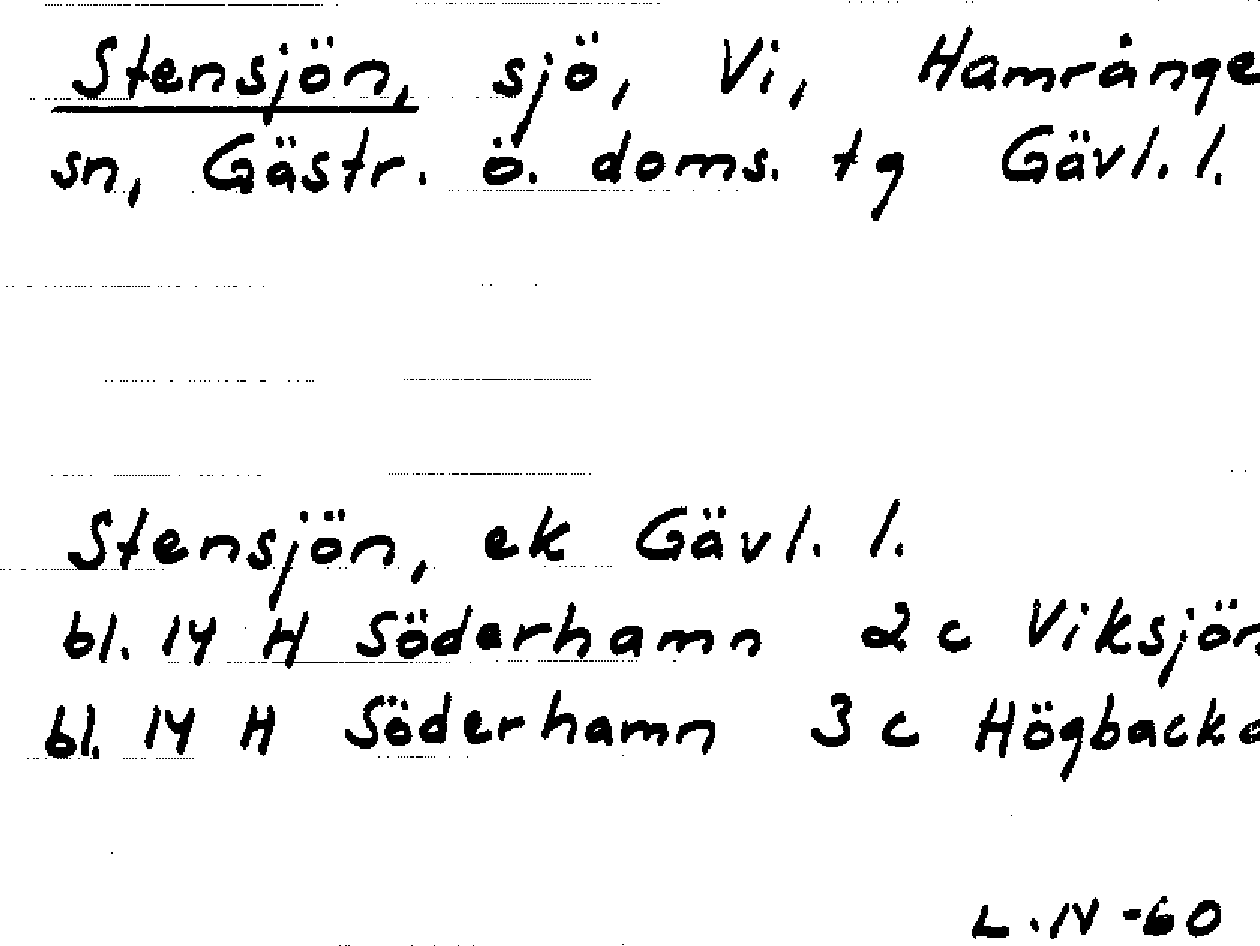 Stensjön, sjö, Vi, Hamrånge
sn, Gästr. ö. doms. tg Gävl. l.
Stensjön, ek Gävl. l.
bl. 14 H Söderhamn 2 c Viksjön
bl. 14 H Söderhamn 3 c Högbacka
L. IV -60